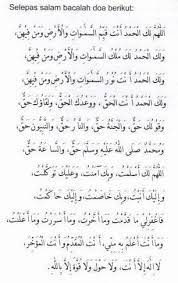 Selepas salam bacalah doa berikut:
اَللّٰهُمَّ لَكَ الْحَمْدُ أَنْتَ قَيِّمُ السَّمَوَاتِ وَالْأَرْضِ وَمَنْ فِيْهِنَّ،
وَلَكَ الْحَمْدُ لَكَ مُلْكُ السَّمَوَاتِ وَالْأَرْضِ وَمَنْ فِيْهِنَّ،
وَلَكَ الْحَمْدُ أَنْتَ نُوْرُ السَّمَوَاتِ وَالْأَرْضِ وَمَنْ فِيْهِنَّ،
وَلَكَ الْحَمْدُ أَنْتَ الْحَقُّ، وَوَعْدُكَ الْحَقُّ، وَلِقَاؤُكَ حَقٌّ،
وَقَوْلُكَ حَقٌّ، وَالْجَنَّةُ حَقٌّ، وَالنَّارُ حَقٌّ، وَالنَّبِيُّوْنَ حَقٌّ،
وَمُحَمَّدٌ صَلَّى اللهُ عَلَيْهِ وَسَلَّمَ حَقٌّ، وَالسَّاعَةُ حَقٌّ،
اَللّٰهُمَّ لَكَ أَسْلَمْتُ، وَبِكَ آمَنْتُ، وَعَلَيْكَ تَوَكَّلْتُ،
وَإِلَيْكَ أَنَبْتُ، وَبِكَ خَاصَمْتُ، وَإِلَيْكَ حَاكَمْتُ،
فَاغْفِرْلِي مَا قَدَّمْتُ وَمَا أَخَّرْتُ، وَمَا أَسْرَرْتُ وَمَا أَعْلَنْتُ،
وَمَا أَنْتَ أَعْلَمُ بِهِ مِنِّي، أَنْتَ الْمُقَدِّمُ وَأَنْتَ الْمُؤَخِّرُ،
لَا إِلٰهَ إِلَّا أَنْتَ، وَلَا حَوْلَ وَلَا قُوَّةَ إِلَّا بِاللهِ.